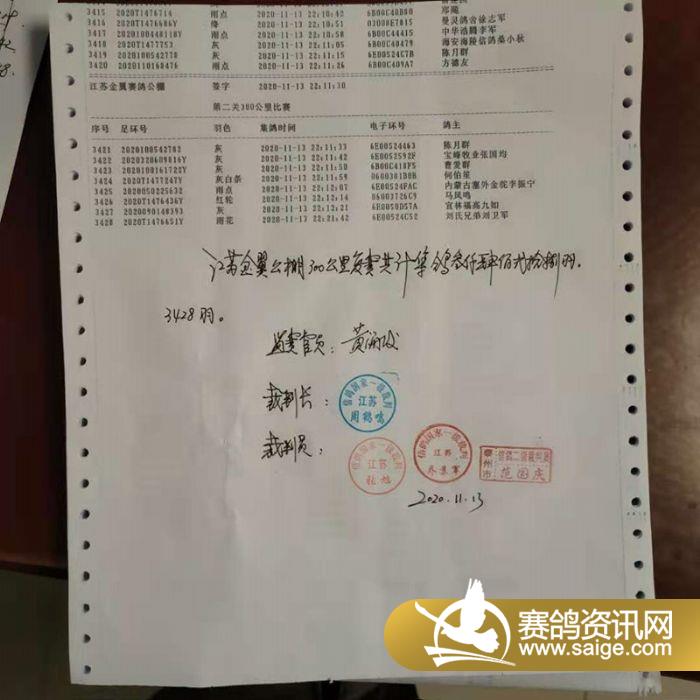 3415 2020T1476714 雨点 2020-11-13 22:10:42 6B00C40BB0 邱飚
3416 2020T1476686Y 绛 2020-11-13 22:10:48 03008E7815 曼灵鸽舍徐志军
3417 20201004481​18Y 雨点 2020-11-13 22:10:51 6B00C44415 中华浩腾李军
3418 2020T1477753 灰 2020-11-13 22:10:58 6B00C40479 海安海陵信鸽桑小秋
3419 2020100542778 灰 2020-11-13 22:11:21 6E00524C7B 陈月群
3420 2020110168476 雨点 2020-11-13 22:11:26 6B00C409A7 方德友
江苏金翼赛鸽公棚 签字 2020-11-13 22:11:30
第二关300公里比赛
序号 足环号 羽色 集鸽时间 电子环号 鸽主
3421 2020100542782 灰 2020-11-13 22:11:33 6E00524463 陈月群
3422 2020320609816Y 灰 2020-11-13 22:11:42 6E0052592F 宝峰牧业张国均
3423 2020108161722Y 灰 2020-11-13 22:11:50 6B00C418F5 曹爱群
3424 2020T1477247Y 灰白条 2020-11-13 22:11:58 0600381BDB 何伯星
3425 2020050225632 雨点 2020-11-13 22:12:07 6E00524FAC 内蒙古塞外金驼李振宁
3426 2020T1476436Y 红轮 2020-11-13 22:12:14 06003726C9 马凤鸣
3427 2020090148393 灰 2020-11-13 22:12:21 6E0050D57A 宜林福高九如
3428 2020T1476651Y 雨花 2020-11-13 22:21:42 6E00524C52 刘氏兄弟刘卫军
江苏金翼公棚300公里复赛共计集鸽叁仟肆佰贰拾捌羽。
3428羽。
监赛官员：黄
裁判长：
信鸽国家一级裁判
江苏
周鹤鸣
裁判员：
信鸽国家一级裁判
江苏
信鸽国家一级裁判
江苏
乔景军
州市
信鸽二级裁判员
范国庆
2020.11.13
赛鸽资讯网
www.saige.com